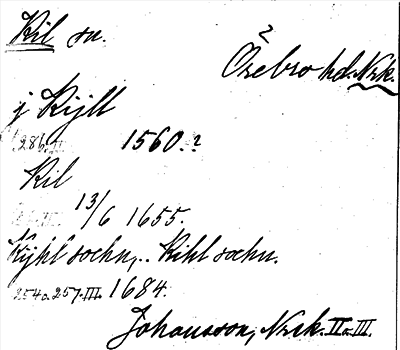 Kil sn.
2
Örebro hd. Nrk.
j Kijll
1560.?
Kil
13/6 1655.
Kijhl sochn,.. Kihl sochn.
254 o. 257. III. 1684.
Johansson, Nrk. II o. III.